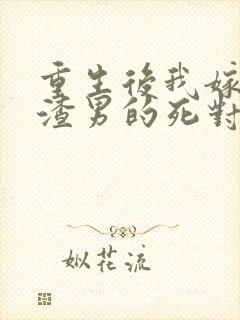 重生後我嫁
渣男的死對
姒花流